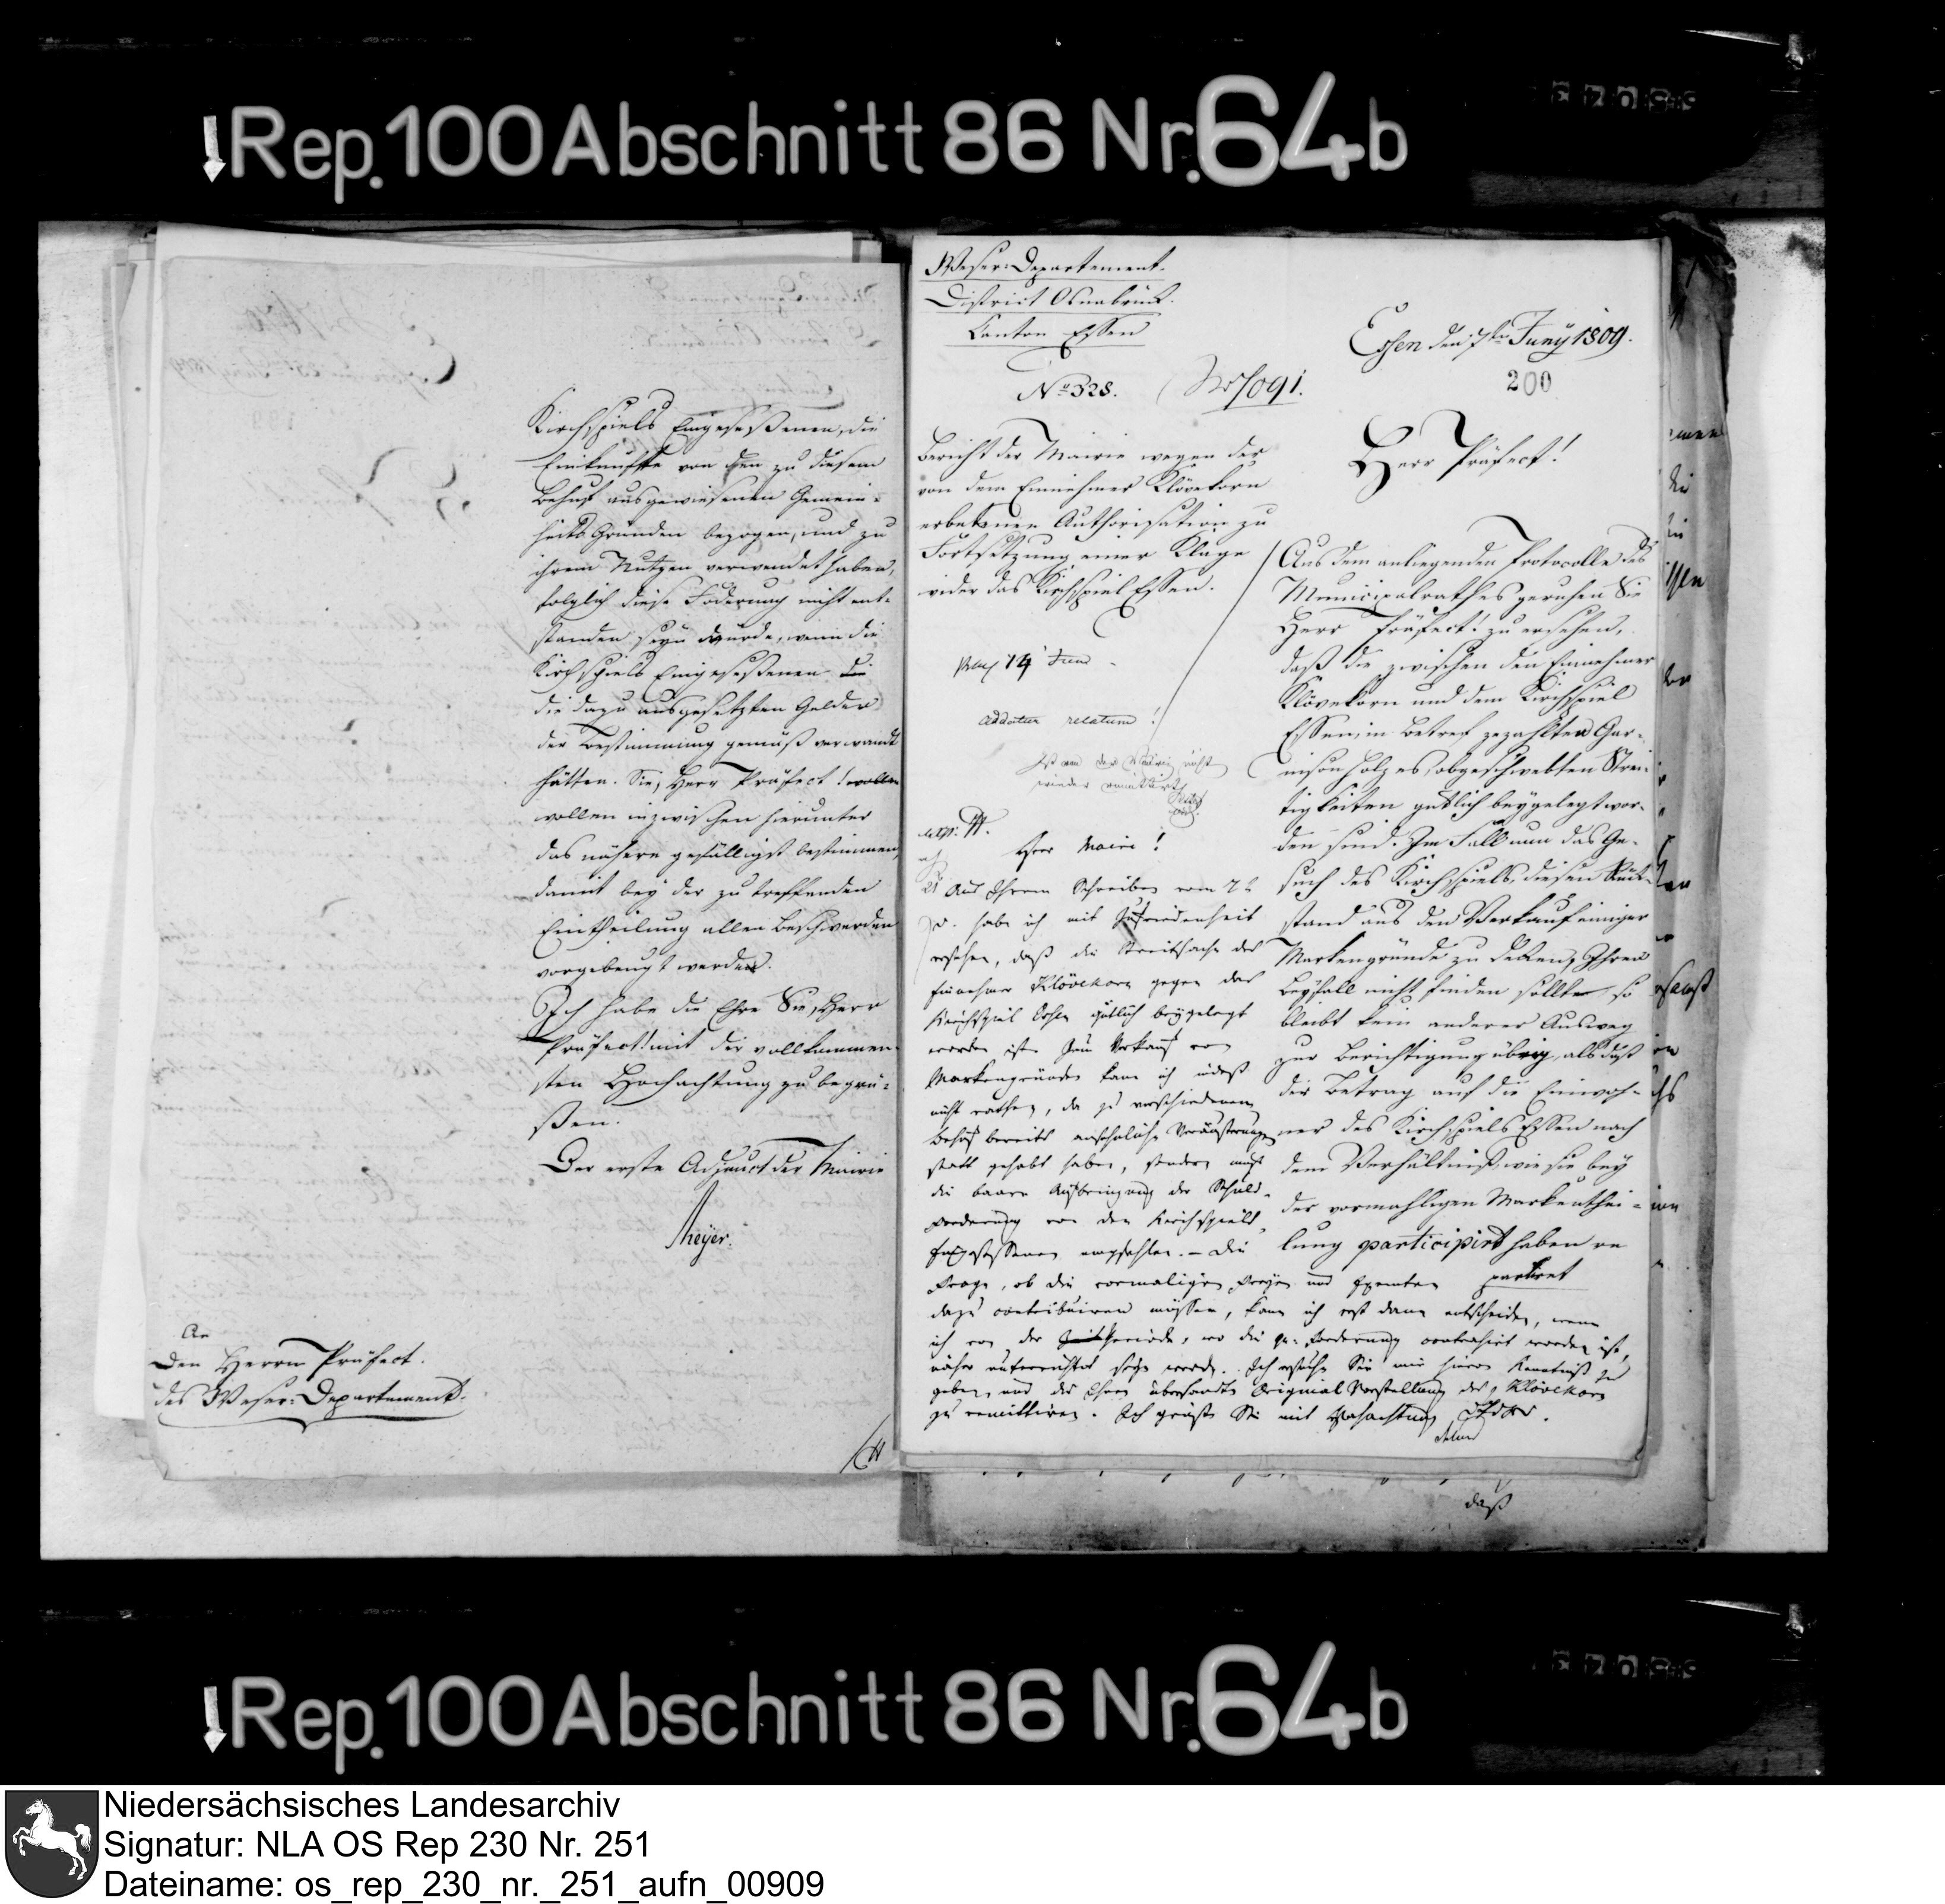 Rep. 100 Abschnitt 86 Nr. 64b
Kirchspiels Eingeseßenen, die
Einkünfte von den zu diesem
Behuf ausgewiesenen Gemein-
heits Gründen bezogen, und zu
ihrem Nutzen verwendet haben,
folglich diese Foderung nicht ent-
standen seyn würde, wenn die
Kirchspiels Eingeseßenen die
die dazu ausgesetzten Gelder
der Bestimmung gemäß verwandt
hätten. Sie, Herr Präfect! wollen
wollen inzwischen hierunter
das nähere gefälligst bestimmen,
damit bey der zu treffenden
Eintheilung allen Beschwerden
vorgebeugt werden.
Ich habe die Ehre Sie, Herr
Präfect! mit der vollkommen-
sten Hochachtung zu begrü-
ßen.
Der erste Adjunct der Mairie
Meyer.
An
Den Herrn Präfect.
des Weser-Departements.
Weser-Departement.
District Osnabrück.
Canton Essen
No 328.
Essen den 7ten Juny 1809.
200
Bericht der Mairie wegen der
von dem Einnehmer Klövekorn
erbetenen Authorisation zu
Fortsetzung einer Klage
wider das Kirchspiel Essen.
Herr Präfect!
Aus dem anliegenden Protocolle des
Municipalrathes geruhen Sie
Herr Präfect! zu ersehen,
daß die zwischen den Einnehmer
Klövekorn und dem Kirchspiel
Essen, in Betref gezahlten Gar-
nison Holzes, obgeschwebten Strei-
tigkeiten gütlich beygelegt wor-
den sind. Im Fall nun das Ge-
such des Kirchspiels, diesen Rück-
stand aus den Verkauf einiger
Markengründe zu decken, Ihren
Beyfall nicht finden sollte, so
bleibt kein anderer Ausweg
zur Berichtigung übrig, als daß
der Betrag auf die Einwoh-
ner des Kirchspiels Essen nach
dem Verhältniß, wie sie bey
der vormahligen Markenthei-
lung participirt haben re
partiret
14 Juni
addatur relatum!
Ist an der Mairie nicht
wieder remittirt
Herr Maire!
Aus Ihrem Schreiben vom 7t
d. habe ich mit Zufriedenheit
ersehen, daß die Streitsache des
Einnehmer Klövekorn gegen das
Kirchspiel Essen gütlich beygelegt
worden ist. Zum Verkauf von
Markengründen kann ich indeß
nicht rathen, da zu verschiedenem
Behuf bereits ansehnliche Veräußerungen
statt gehabt haben, sondern muß
die baare Aufbringung der Schuld-
forderung von den Kirchspiels
Eingesessenen empfehlen. – Die
Frage, ob die vormaligen Freyen und Exemten
dazu contribuiren müssen, kann ich erst dann entscheiden, wenn
ich von der Periode, wo die qu. Forderung contrahirt worden ist,
näher unterrichtet seyn werde. Ich ersuche Sie mir hievon Kenntniß zu
geben, und die Ihnen übersandte Original Vorstellung des p. Klövekorn
zu remittiren. Ich grüße Sie mit Hochachtung
daß
Rep. 100 Abschnitt 86 Nr. 64b
Niedersächsisches Landesarchiv
Signatur: NLA OS Rep 230 Nr. 251
Dateiname: os_rep_230_nr._251_aufn_00909